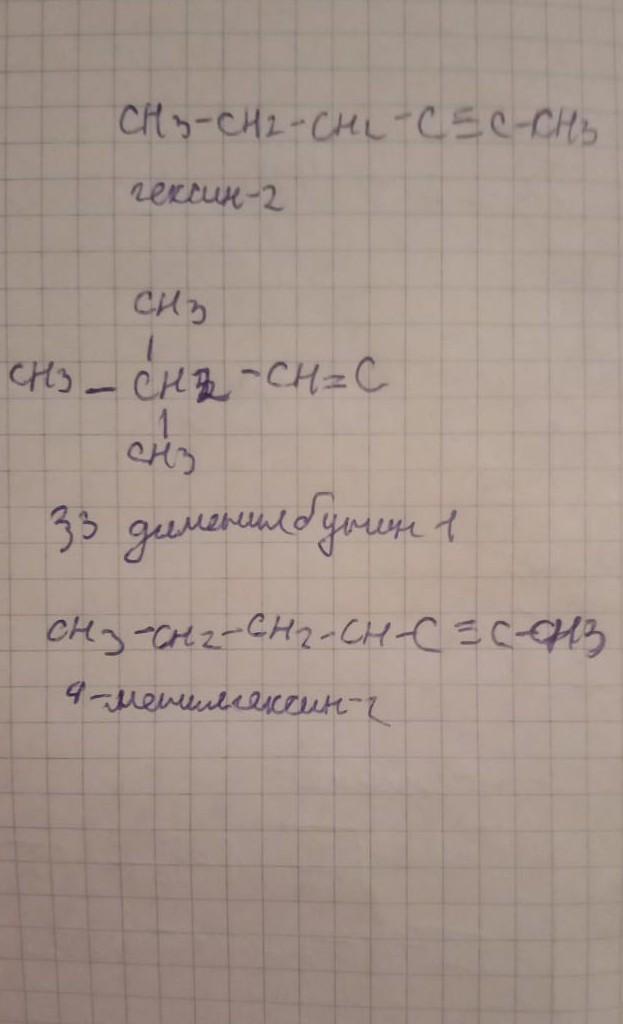 CH3-CH2-CH2-C≡C-CH3
гексин-2
CH3
CH3-CH2-CH=C
CH3
33 диметилбутин 1
CH3-CH2-CH2-CH-C≡C-CH3
4-метилгексин-2